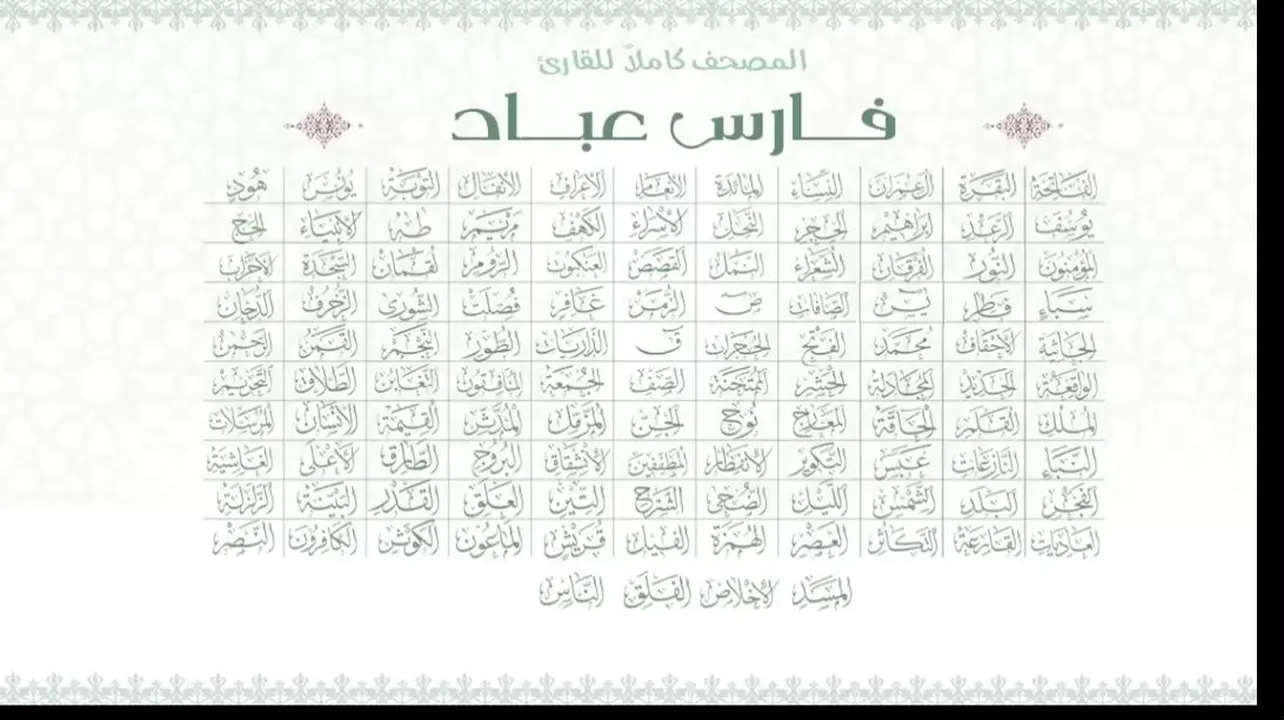 المصحف كاملاً للقارئ
فارس عباد
الفاتحة البقرة آل عمران النساء المائدة الأنعام الأعراف الأنفال التوبة يونس هود
يوسف الرعد إبراهيم الحجر النحل الأسراء الكهف مريم طه الأنبياء الحج
المؤمنون النور الفرقان الشعراء النمل القصص العنكبوت الروم لقمان السجدة الأحزاب
سبإ فاطر يس الصافات ص الزمر غافر فصلت الشورى الزخرف الدخان
الجاثية الأحقاف محمد الفتح الحجرات ق الذاريات الطور النجم القمر الرحمن
الواقعة الحديد المجادلة الحشر الممتحنة الصف الجمعة المنافقون التغابن الطلاق التحريم
الملك القلم الحاقة المعارج نوح الجن المزمل المدثر القيمة الإنسان المرسلات
النبإ النازعات عبس التكوير الانفطار المطففين الانشقاق البروج الطارق الأعلى الغاشية
الفجر البلد الشمس الليل الضحى الشرح التين العلق القدر البينة الزلزلة
العاديات القارعة التكاثر العصر الهمزة الفيل قريش الماعون الكوثر الكافرون النصر
المسد الإخلاص الفلق الناس